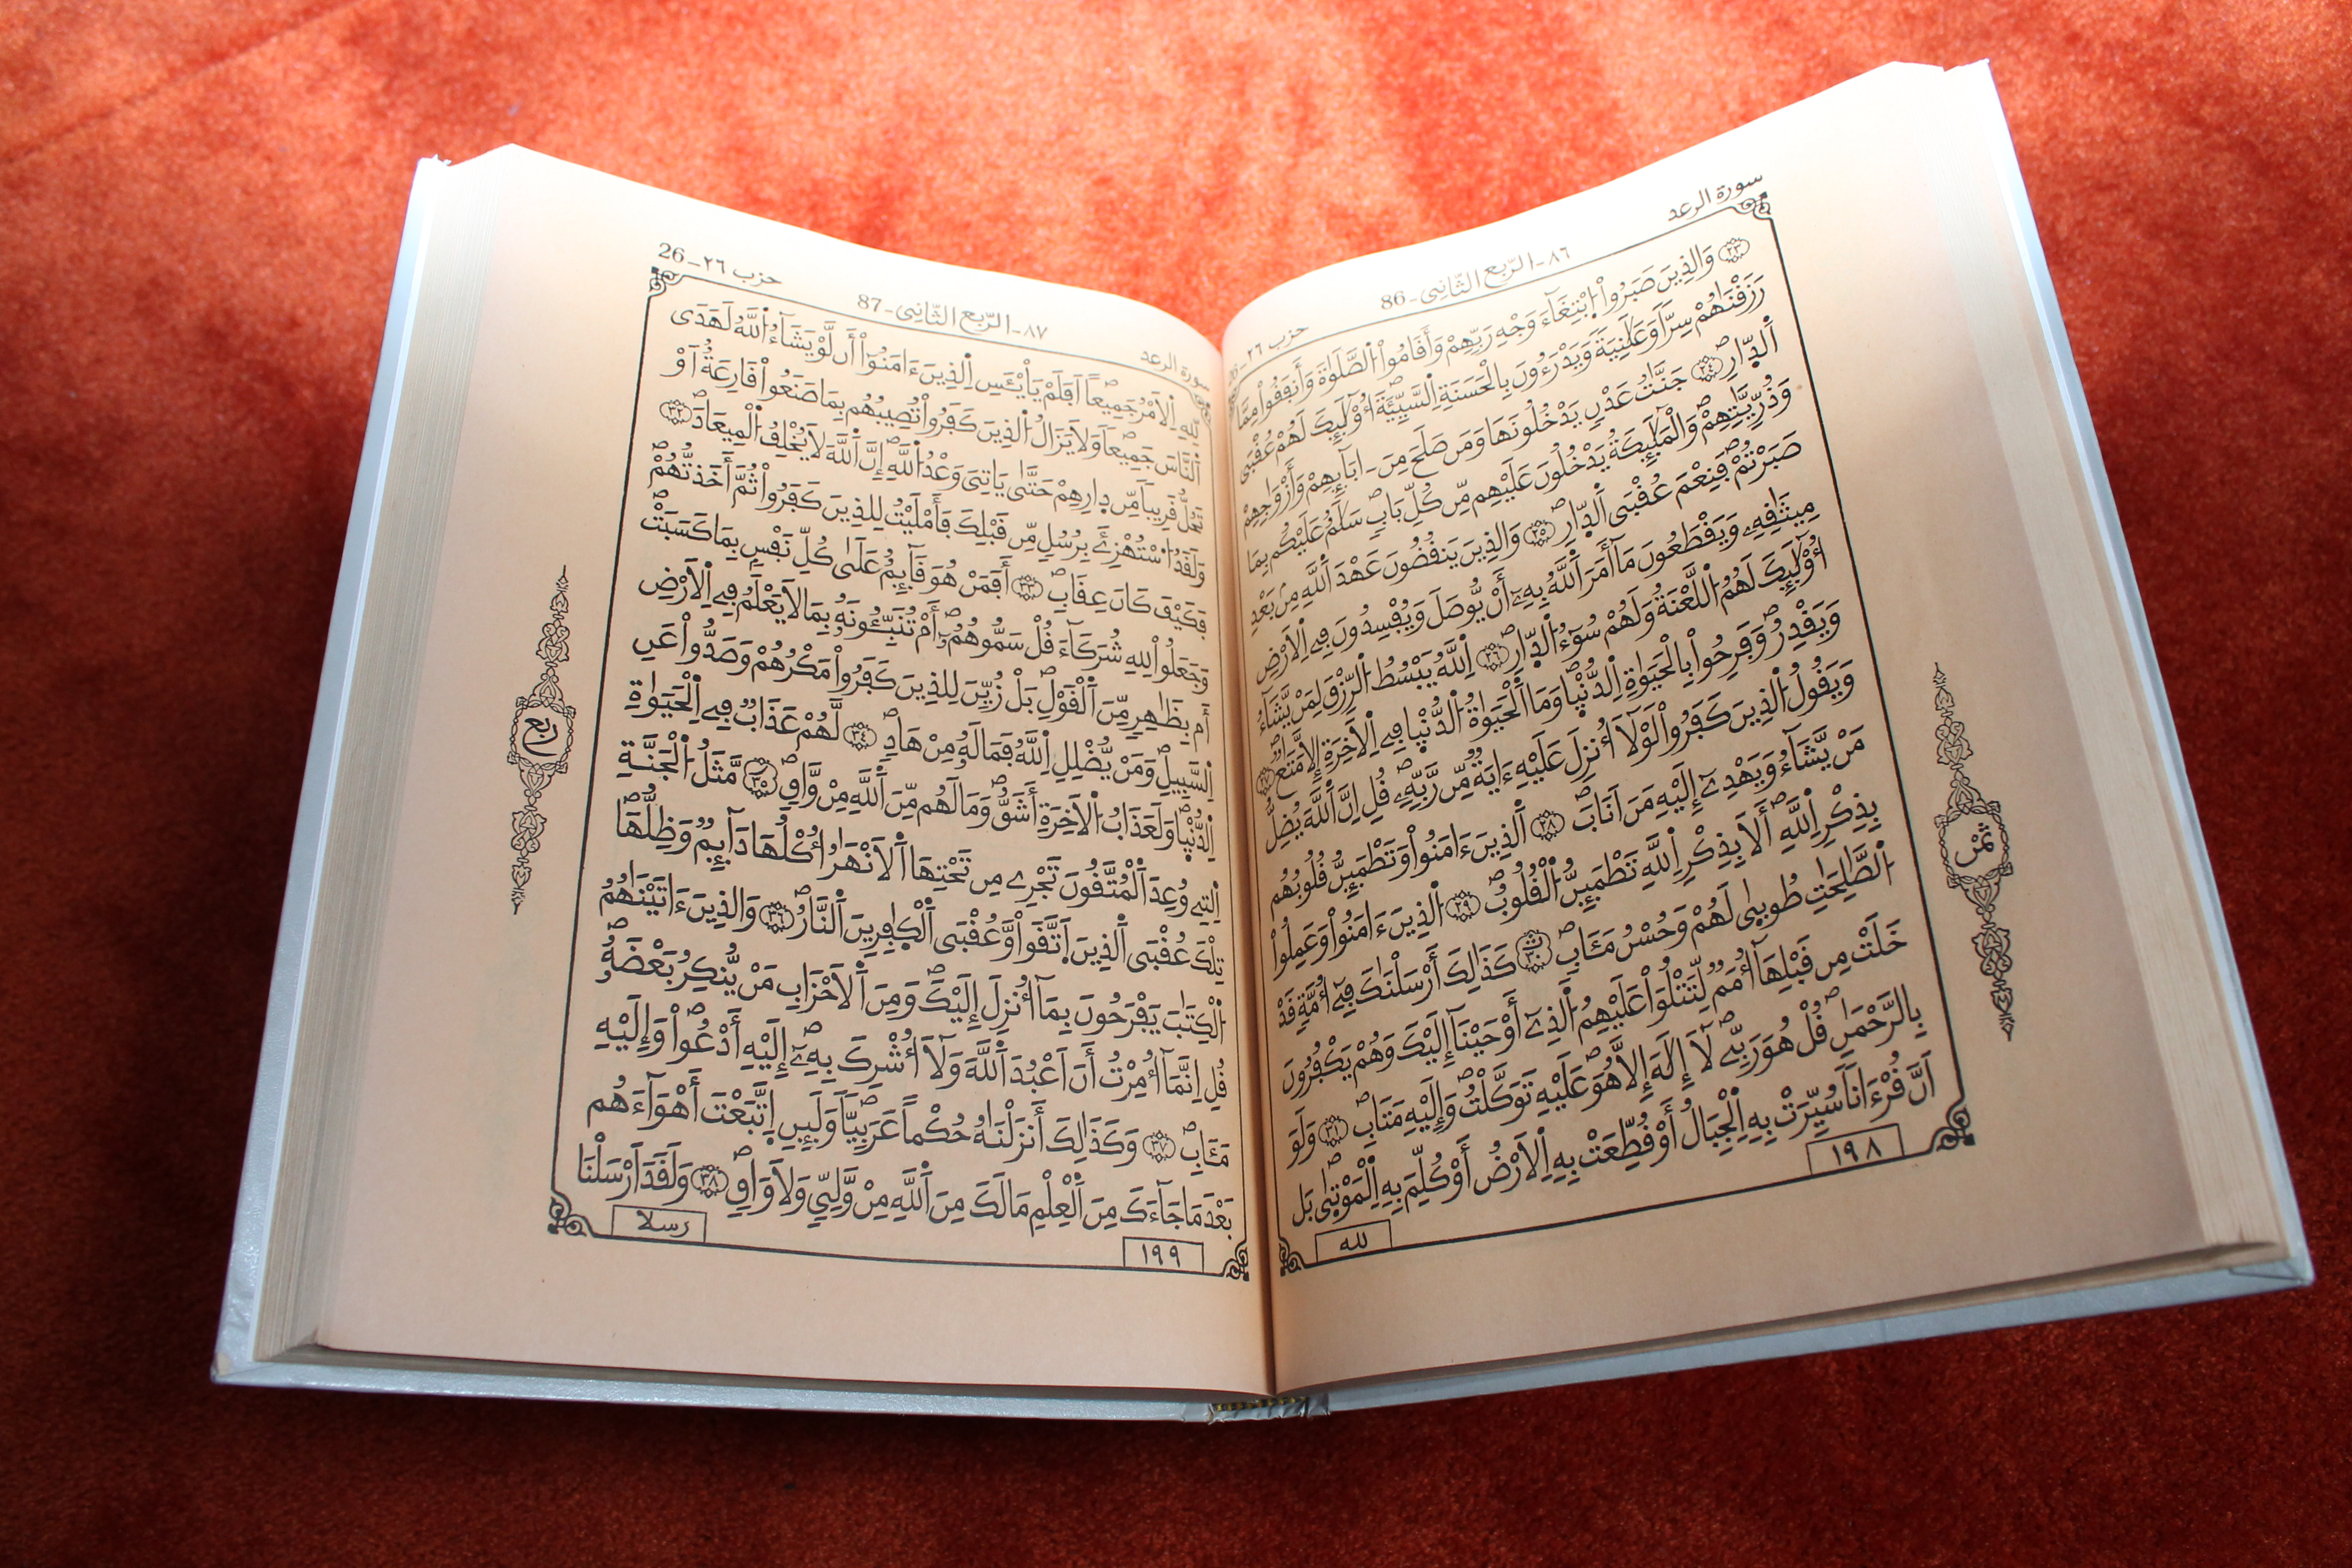 سورة الرعد
86-الرّبع الثّانى-٨٦
حزب ٢٦-26
٢٣ وَالذِينَ صَبَرُواْ اُبْتِغَآءَ وَجْهِ رَبِّهِمْ وَأَقَامُواْ الصَّلَوٰةَ وَأَنفَقُواْ مِمَّا
رَزَقْنَٰهُمْ سِرّاً وَعَلَٰنِيَةً وَيَدْرَءُونَ بِالْحَسَنَةِ اِلسَّيِّئَةَ أُوْلَٰٓئِكَ لَهُمْ عُقْبَى
اَلدِّارِ ٢٤ جَنَّٰتُ عَدْنٍ يَدْخُلُونَهَا وَمَن صَلَحَ مِنَ ـ ابَآئِهِمْ وَأَزْوَٰجِهِمْ
وَذُرِّيَّٰتِهِمْ وَالْمَلَٰٓئِكَةُ يَدْخُلُونَ عَلَيْهِم مِّن كُلِّ بَابٍ سَلَٰمٌ عَلَيْكُم بِمَا
صَبَرْتُمْ فَنِعْمَ عُقْبَى اَلدِّارِ ٢٥ وَالذِينَ يَنقُضُونَ عَهْدَ اَللَّهِ مِنۢ بَعْدِ
مِيثَٰقِهِۦ وَيَقْطَعُونَ مَآ أَمَرَ اَللَّهُ بِهِۦٓ أَنْ يُّوصَلَ وَيُفْسِدُونَ فِى اِلَارْضِ
أُوْلَٰٓئِكَ لَهُمُ اُللَّعْنَةُ وَلَهُمْ سُوٓءُ اُلدِّارِ ٢٦ اِللَّهُ يَبْسُطُ اُلرِّزْقَ لِمَنْ يَّشَآءُ
وَيَقْدِرُ وَفَرِحُواْ بِالْحَيَوٰةِ اِلدُّنْيِا وَمَا اَلْحَيَوٰةُ اُلدُّنْيِا فِى اِلَاخِرَةِ إِلَّا مَتَٰعٌ ٢٧
وَيَقُولُ اُلذِينَ كَفَرُواْ لَوْلَآ أُنزِلَ عَلَيْهِ ءَايَةٌ مِّن رَّبِّهِۦ قُلِ اِنَّ اَللَّهَ يُضِلُّ
مَنْ يَّشَآءُ وَيَهْدِىٓ إِلَيْهِ مَنَ اَنَابَ ٢٨ اَلذِينَ ءَامَنُواْ وَتَطْمَئِنُّ قُلُوبُهُم
بِذِكْرِ اِللَّهِ أَلَا بِذِكْرِ اِللَّهِ تَطْمَئِنُّ اُلْقُلُوبُ ٢٩ اُلذِينَ ءَامَنُواْ وَعَمِلُواْ
اُلصَّٰلِحَٰتِ طُوبِىٰ لَهُمْ وَحُسْنُ مَـَٔابٍ ٣٠ كَذَٰلِكَ أَرْسَلْنَٰكَ فِىٓ أُمَّةٍ قَدْ
خَلَتْ مِن قَبْلِهَآ أُمَمٌ لِّتَتْلُوَاْ عَلَيْهِمُ اُلذِىٓ أَوْحَيْنَآ إِلَيْكَ وَهُمْ يَكْفُرُونَ
بِالرَّحْمَٰنِ قُلْ هُوَ رَبِّى لَآ إِلَٰهَ إِلَّا هُوَ عَلَيْهِ تَوَكَّلْتُ وَإِلَيْهِ مَتَابِ ٣١ وَلَوَ
اَنَّ قُرْءَاناً سُيِّرَتْ بِهِ اِلْجِبَالُ أَوْ قُطِّعَتْ بِهِ اِلَارْضُ أَوْ كُلِّمَ بِهِ اِلْمَوْتِىٰ بَل
١٩٨
لله
ثمن
سورة الرعد
87-الرّبع الثّانى-٨٧
حزب ٢٦-26
لِّلهِ اِلَامْرُ جَمِيعاً اَفَلَمْ يَاْيْـَٔسِ اِلذِينَ ءَامَنُوٓاْ أَن لَّوْ يَشَآءُ اُللَّهُ لَهَدَى
اَلنَّاسَ جَمِيعاً وَلَا يَزَالُ اُلذِينَ كَفَرُواْ تُصِيبُهُم بِمَا صَنَعُواْ قَارِعَةٌ اَوْ
تَحُلُّ قَرِيباً مِّن دِارِهِمْ حَتَّىٰ يَاتِىَ وَعْدُ اُللَّهِ إِنَّ اَللَّهَ لَا يُخْلِفُ اُلْمِيعَادَ ٣٢
وَلَقَدُ اُسْتُهْزِئَ بِرُسُلٍ مِّن قَبْلِكَ فَأَمْلَيْتُ لِلذِينَ كَفَرُواْ ثُمَّ أَخَذتُّهُمْ
فَكَيْفَ كَانَ عِقَابِ ٣٣ أَفَمَنْ هُوَ قَآئِمٌ عَلَىٰ كُلِّ نَفْسٍ بِمَا كَسَبَتْ
وَجَعَلُواْ لِلهِ شُرَكَآءَ قُلْ سَمُّوهُمُۥٓ أَمْ تُنَبِّـُٔونَهُۥ بِمَا لَا يَعْلَمُ فِى اِلَارْضِ
أَم بِظَٰهِرٍ مِّنَ اَلْقَوْلِ بَلْ زُيِّنَ لِلذِينَ كَفَرُواْ مَكْرُهُمْ وَصَدُّواْ عَنِ
اِلسَّبِيلِ وَمَنْ يُّضْلِلِ اِللَّهُ فَمَا لَهُۥ مِنْ هَادٍ ٣٤ لَّهُمْ عَذَابٌ فِى اِلْحَيَوٰةِ
اِلدُّنْيِا وَلَعَذَابُ اُلَاخِرَةِ أَشَقُّ وَمَا لَهُم مِّنَ اَللَّهِ مِنْ وَّاقٍ ٣٥ مَّثَلُ اُلْجَنَّةِ
اِلتِى وُعِدَ اَلْمُتَّقُونَ تَجْرِى مِن تَحْتِهَا اَلَانْهَٰرُ أُكْلُهَا دَآئِمٌ وَظِلُّهَا
تِلْكَ عُقْبَى اَلذِينَ اَتَّقَواْ وَّعُقْبَى اَلْكِٰفِرِينَ اَلنَّارُ ٣٦ وَالذِينَ ءَاتَيْنَٰهُمُ
اُلْكِتَٰبَ يَفْرَحُونَ بِمَآ أُنزِلَ إِلَيْكَ وَمِنَ اَلَاحْزَابِ مَنْ يُّنكِرُ بَعْضَهُۥ
قُلِ اِنَّمَآ أُمِرْتُ أَنَ اَعْبُدَ اَللَّهَ وَلَآ أُشْرِكَ بِهِۦٓ إِلَيْهِ أَدْعُواْ وَإِلَيْهِ
مَـَٔابِ ٣٧ وَكَذَٰلِكَ أَنزَلْنَٰهُ حُكْماً عَرَبِيّاً وَلَئِنِ اِتَّبَعْتَ أَهْوَآءَهُم
بَعْدَ مَا جَآءَكَ مِنَ اَلْعِلْمِ مَا لَكَ مِنَ اَللَّهِ مِنْ وَّلِىٍّ وَلَا وَاقٍ ٣٨ وَلَقَدَ اَرْسَلْنَا
١٩٩
رسلا
ربع